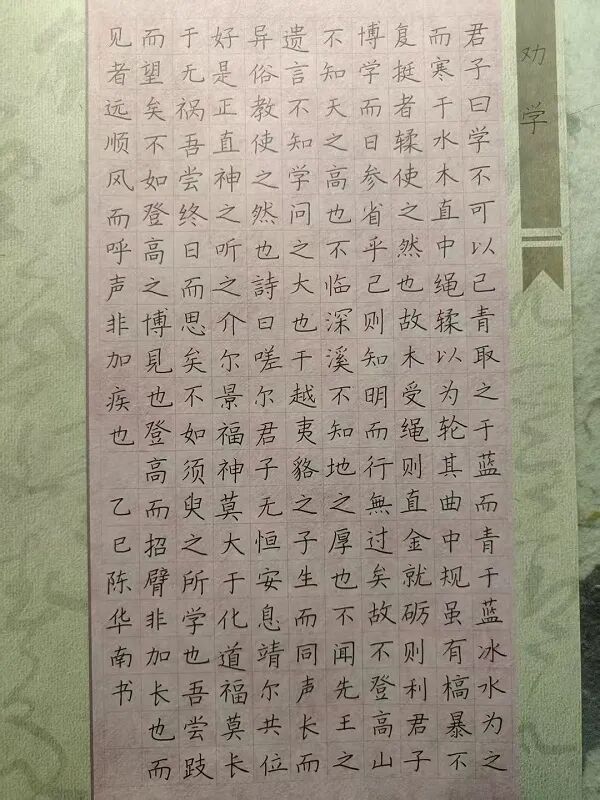 劝学
君子曰学不可以已青取之于蓝而青于蓝冰水为之
而寒于水木直中绳𫐓以为轮其曲中规虽有槁暴不
复挺者𫐓使之然也故木受绳则直金就砺则利君子
博学而日参省乎己则知明而行無过矣故不登高山
不知天之高也不临深溪不知地之厚也不闻先王之
遗言不知学问之大也干越夷貉之子生而同声长而
异俗教使之然也詩曰嗟尔君子无恒安息靖尔共位
好是正直神之听之介尔景福神莫大于化道福莫长
于无祸吾尝终日而思矣不如须臾之所学也吾尝跂
而望矣不如登高之博見也登高而招臂非加长也而
见者远顺风而呼声非加疾也 乙巳陈华南书